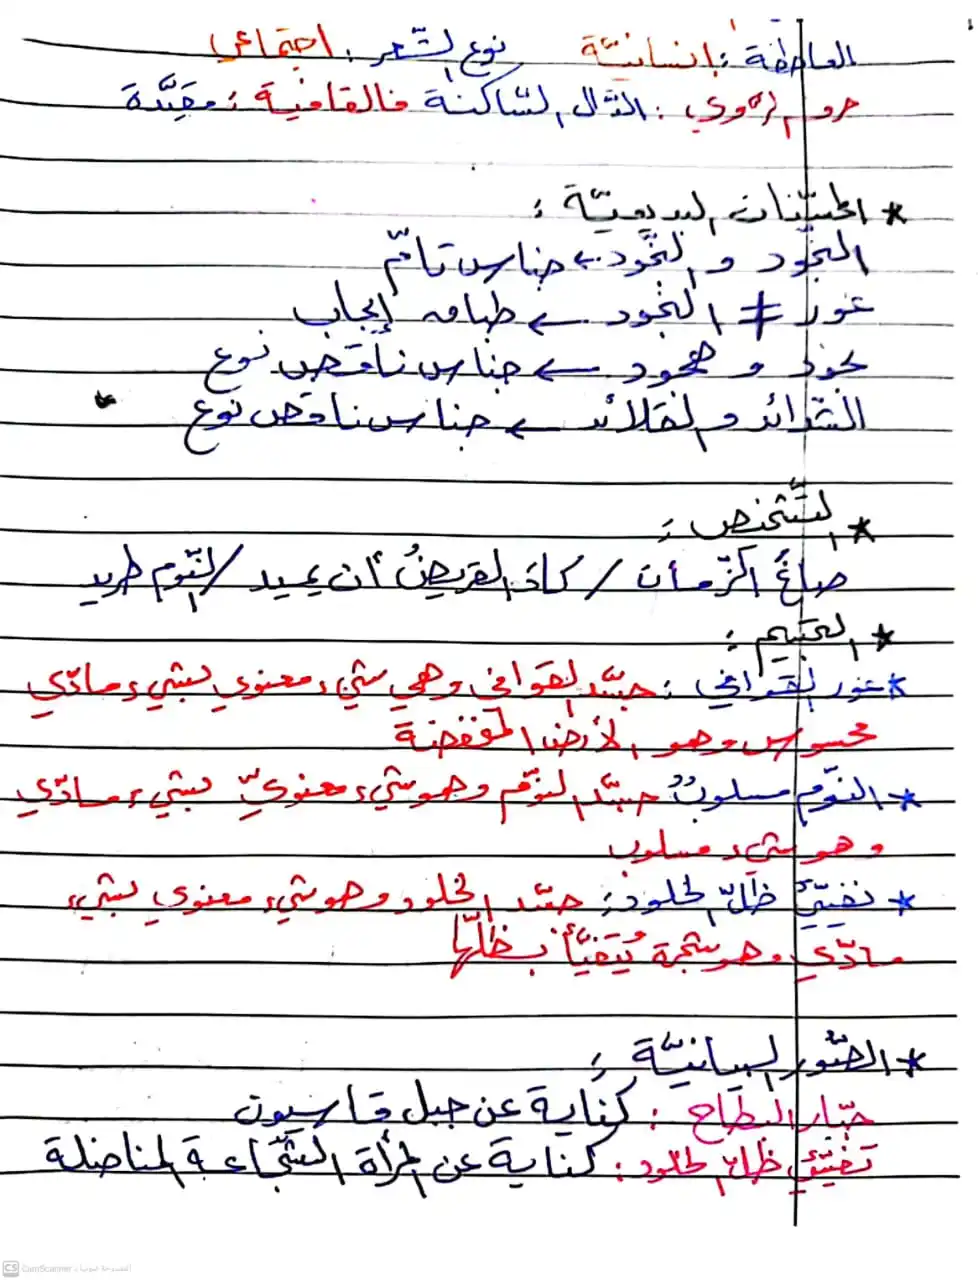 العاطفة : إنسانيّة نوع الشّعر : اجتماعي
حرف الرّوي : الدّال السّاكنة فالقافية : مقيّدة
* المحسّنات البديعيّة :
النّجود و النّجود ← جناس تامّ
غور ≠ النجود ← طباق إيجاب
نجود و هجود ← جناس ناقص نوع
الشدائد والقلائد ← جناس ناقص نوع
* التّشخيص :
صاغَ الزّمان / كادَ القريضُ أن يميد / النّوم طريد
* التجسيم :
* غور القوافي : جسّد القوافي وهي شيء معنوي بشيء مادّي
محسوس وهو الأرض المنخفضة
* النّوم مسلوبٌ جسّد النّوم وهو شيء معنويّ بشيء مادّي
وهو شيء مسلوب
* تفيّئي ظلّ الخلود : جسّد الخلود وهو شيء معنوي بشيء
مادّي وهو شجرة يُتفيّأ بظلّها
* الصّور البيانيّة :
جبّار البطاح : كناية عن جبل قاسيون
تفيّئي ظلّ الخلود : كناية عن المرأة الشّجاعة المناضلة
CS CamScanner الممسوحة ضوئيا بـ